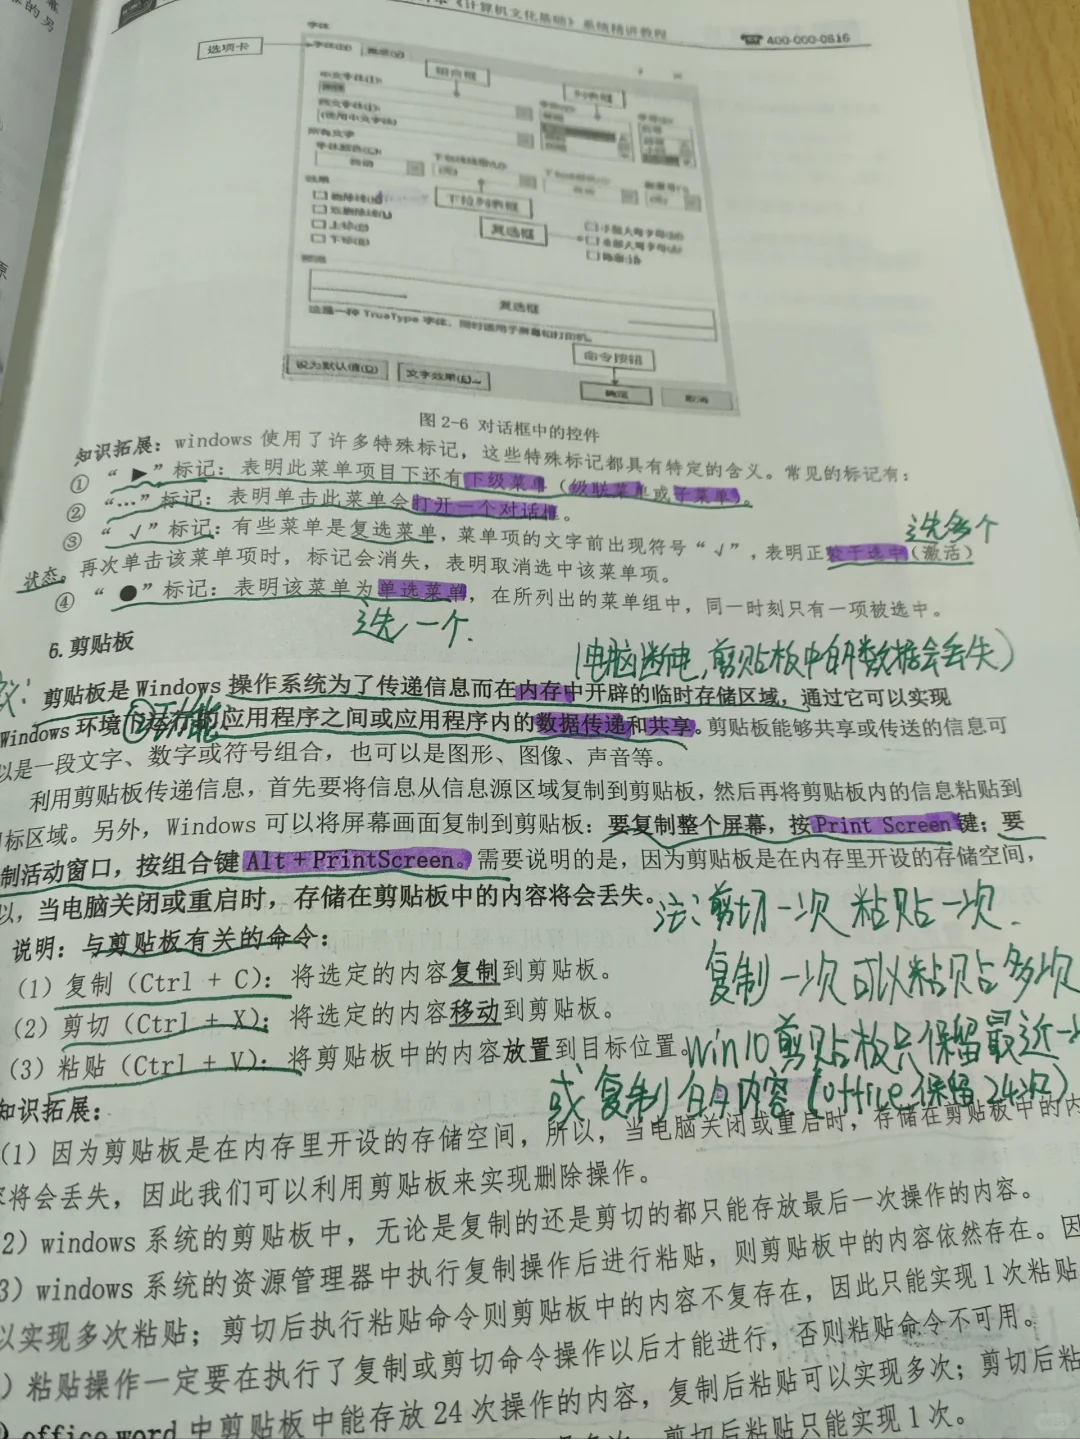 《计算机文化基础》系统精讲教程
☎ 400-000-0816
选项卡
组合框
列表框
下拉列表框
复选框
复选框
这是一种 TrueType 字体，同时适用于屏幕和打印机。
命令按钮
设为默认值(D)
文字效果(E)…
确定
取消
图 2-6 对话框中的控件
知识拓展：windows 使用了许多特殊标记，这些特殊标记都具有特定的含义。常见的标记有：
① “ ▶” 标记：表明此菜单项目下还有下级菜单（级联菜单或子菜单）。
② “…” 标记：表明单击此菜单会打开一个对话框。
选多个
③ “ √” 标记：有些菜单是复选菜单，菜单项的文字前出现符号“√”，表明正处于选中（激活）
状态。再次单击该菜单项时，标记会消失，表明取消选中该菜单项。
④ “ ●” 标记：表明该菜单为单选菜单，在所列出的菜单组中，同一时刻只有一项被选中。
选一个.
6.剪贴板
(电脑断电,剪贴板中的数据会丢失)
剪贴板是 Windows 操作系统为了传递信息而在内存中开辟的临时存储区域，通过它可以实现
②功能
Windows 环境下运行的应用程序之间或应用程序内的数据传递和共享。剪贴板能够共享或传送的信息可
以是一段文字、数字或符号组合，也可以是图形、图像、声音等。
利用剪贴板传递信息，首先要将信息从信息源区域复制到剪贴板，然后再将剪贴板内的信息粘贴到
标区域。另外，Windows 可以将屏幕画面复制到剪贴板：要复制整个屏幕，按 Print Screen 键；要
制活动窗口，按组合键 Alt＋PrintScreen。需要说明的是，因为剪贴板是在内存里开设的存储空间，
以，当电脑关闭或重启时，存储在剪贴板中的内容将会丢失。
注：剪切一次 粘贴一次.
说明：与剪贴板有关的命令：
(1) 复制（Ctrl + C）：将选定的内容复制到剪贴板。
复制一次可以粘贴多次
(2) 剪切（Ctrl + X）：将选定的内容移动到剪贴板。
(3) 粘贴（Ctrl + V）：将剪贴板中的内容放置到目标位置。
Win10剪贴板只保留最近一
或复制的内容 (office保留24次)
知识拓展：
(1) 因为剪贴板是在内存里开设的存储空间，所以，当电脑关闭或重启时，存储在剪贴板中的内
容将会丢失，因此我们可以利用剪贴板来实现删除操作。
2) windows 系统的剪贴板中，无论是复制的还是剪切的都只能存放最后一次操作的内容。
3) windows 系统的资源管理器中执行复制操作后进行粘贴，则剪贴板中的内容依然存在。因
以实现多次粘贴；剪切后执行粘贴命令则剪贴板中的内容不复存在，因此只能实现 1 次粘贴
) 粘贴操作一定要在执行了复制或剪切命令操作以后才能进行，否则粘贴命令不可用。
office word 中剪贴板中能存放 24 次操作的内容，复制后粘贴可以实现多次；剪切后粘
剪切后粘贴只能实现 1 次。